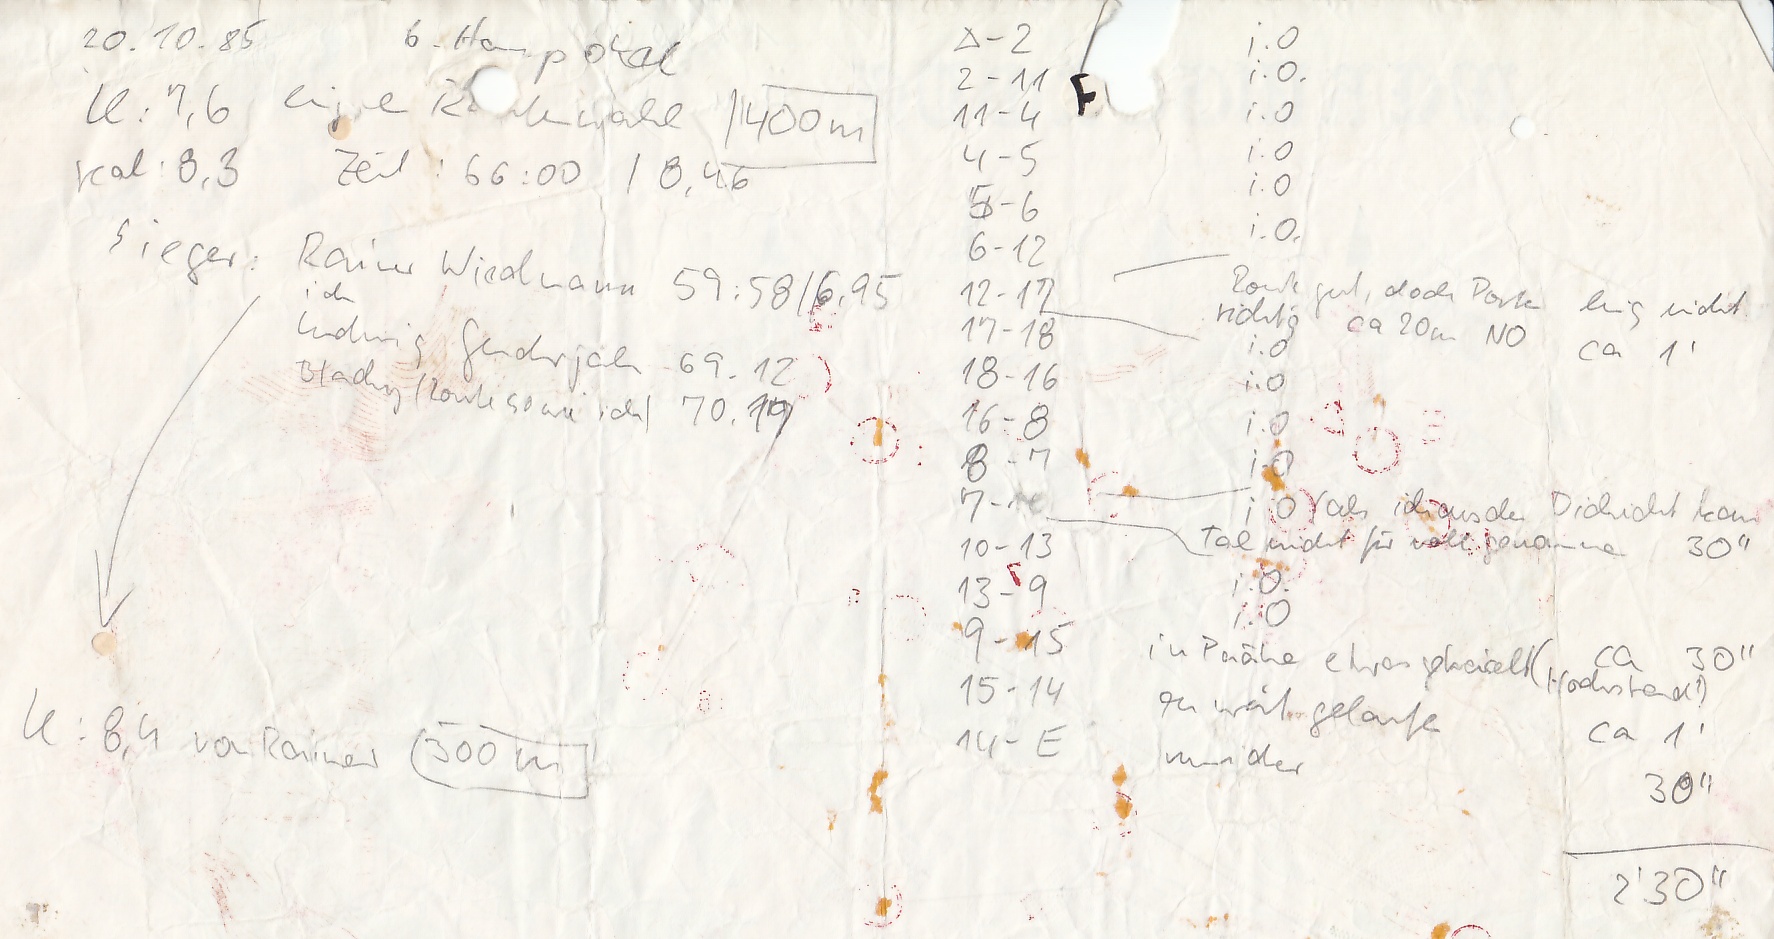 20.10.85
6.
lL: 7,6 eigne 1400m
real: 8,3 Zeit: 66:00 / 8,46
Sieger: Rainer Wiedmann 59:58/6,95
ich
Ludwig 69.12
(Route so wie ich) 70.
lL: 8,4 von Rainer (500m)
Δ-2 i.O
2-11 i.O.
11-4 i.O
4-5 i.O
5-6 i.O
6-12 i.O.
12-17 Route gut, doch Posten hing nicht
richtig ca 20m NO ca 1'
17-18 i.O
18-16 i.O
16-8 i.O
8-7 i.O
7- i.O als ich aus der Dickicht kam
Tal nicht für voll genommen 30"
10-13 i.O.
13-9 i.O
9-15 in etwas ca 30"
(Hochstand!)
15-14 zu weit gelaufen ca 1'
14-E 30"
2'30"
F